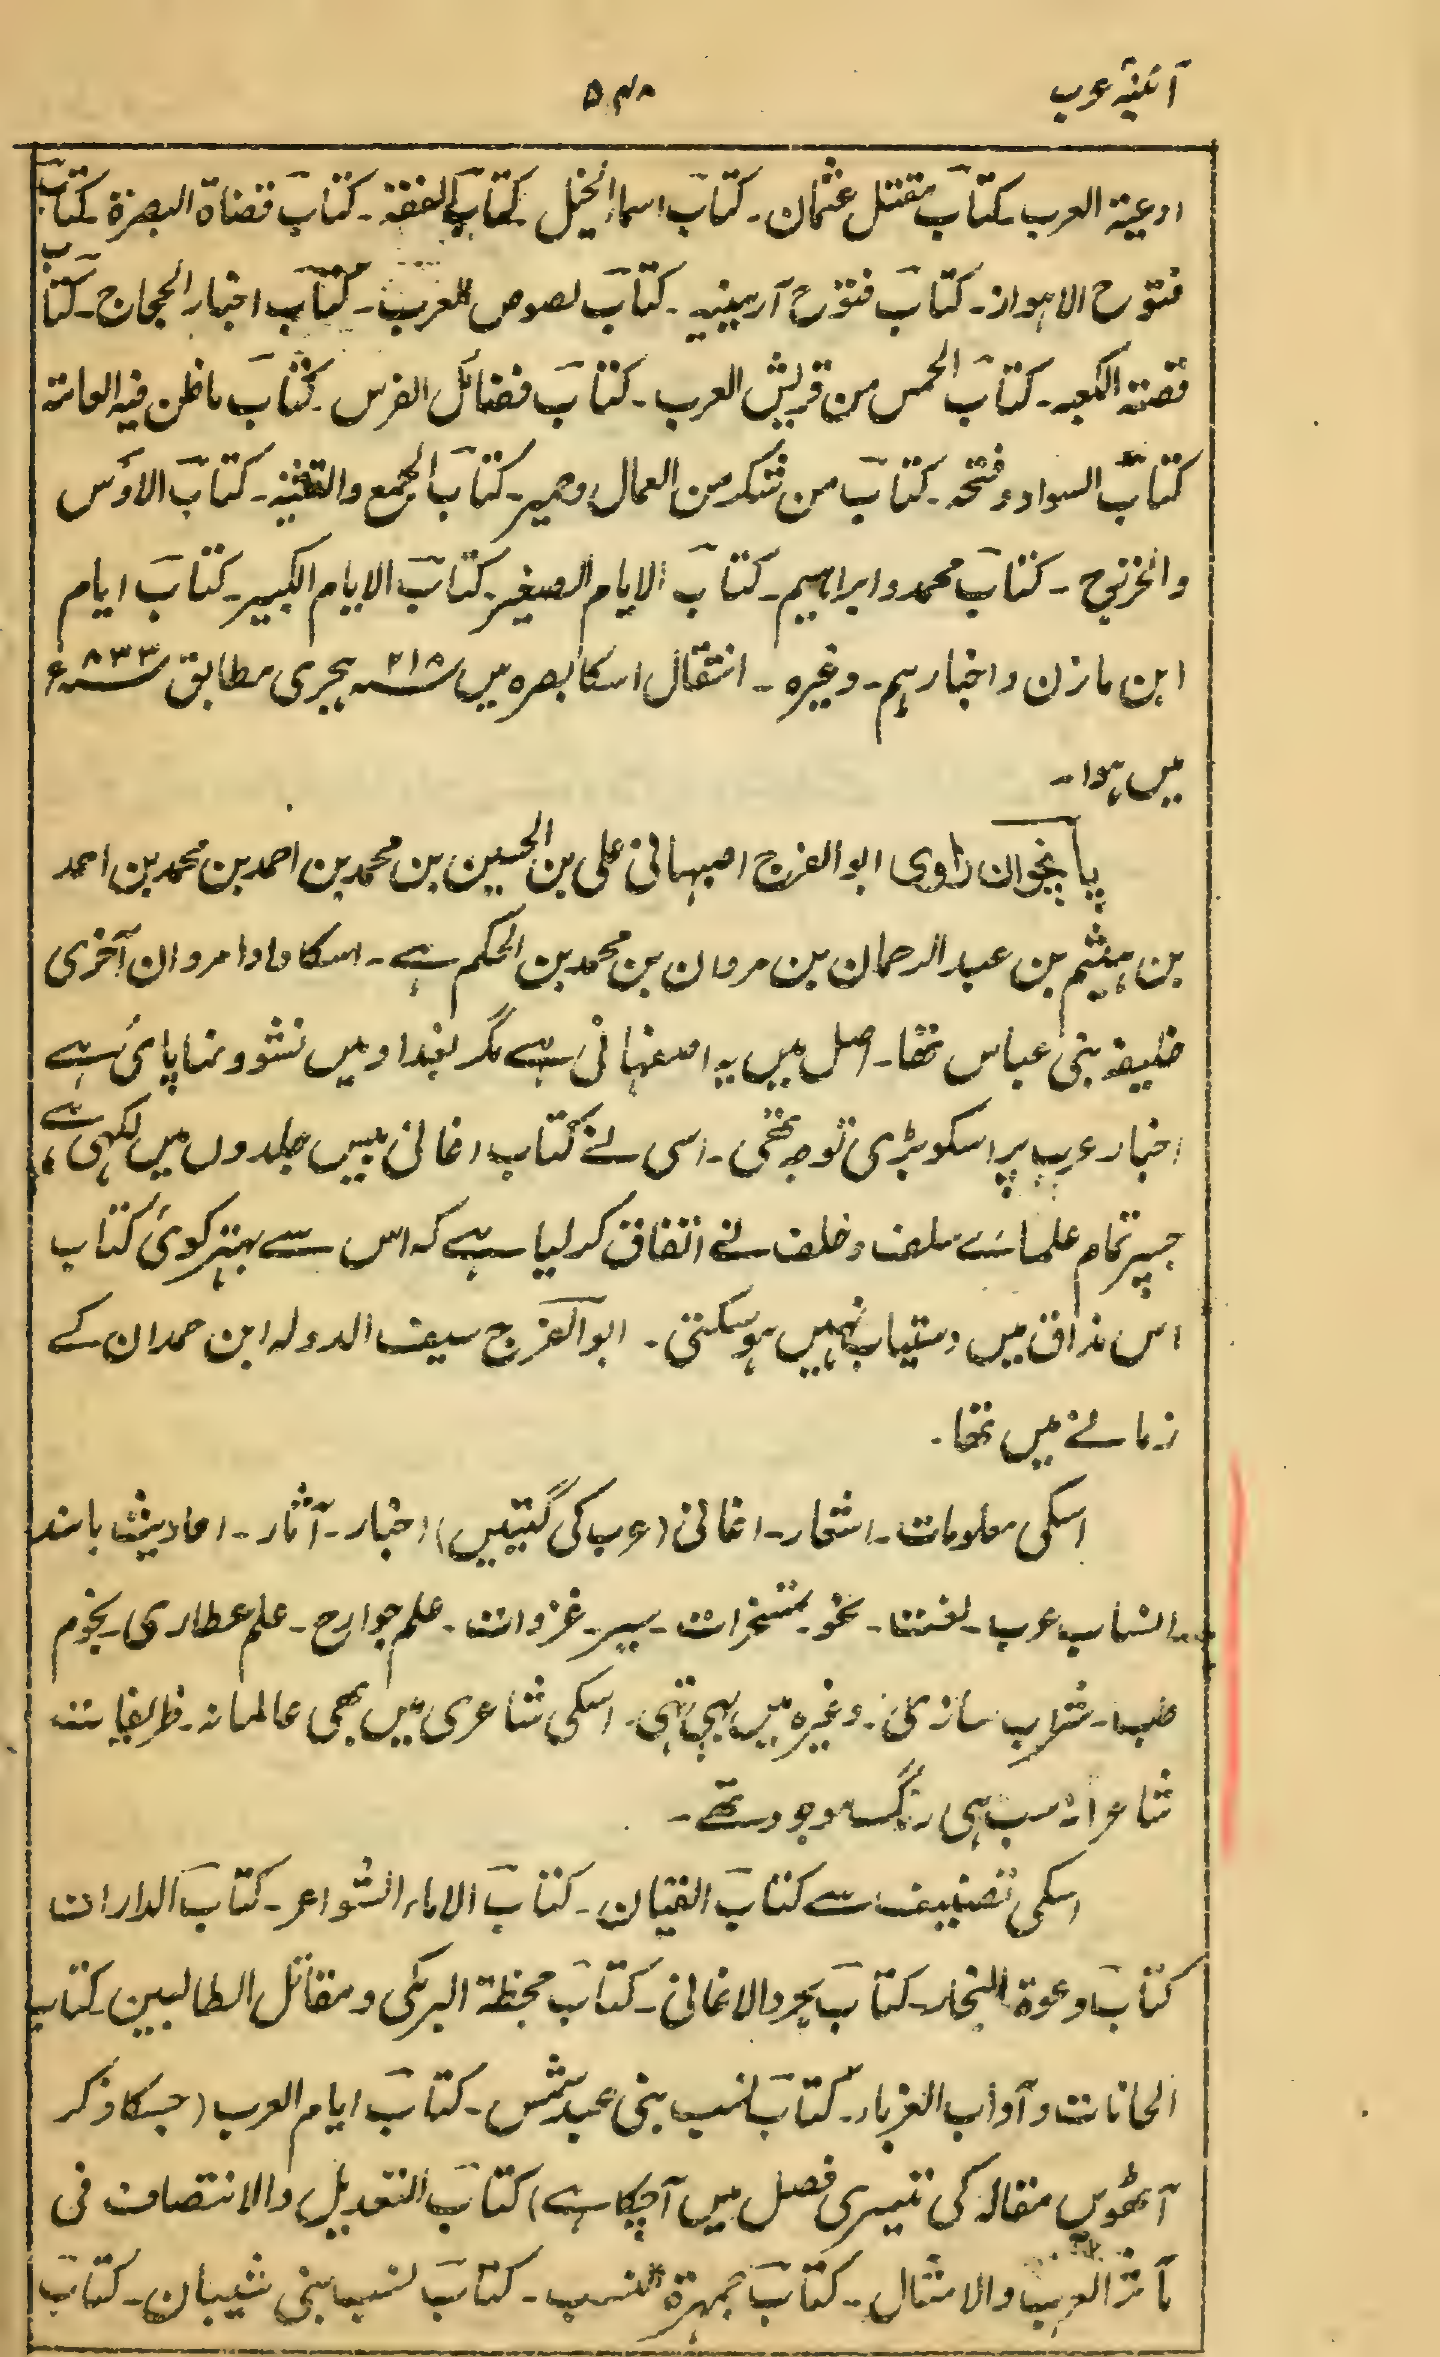 آئینۂ عرب
۵۴۸
ادعیۃ العرب۔ کتاب مقتل عثمان۔ کتاب اسماء الخیل۔ کتاب العفقۃ۔ کتاب قضاۃ البصرۃ۔ کتاب
فتوح الاہواز۔ کتاب فتوح آرمینیہ۔ کتاب لصوص العرب۔ کتاب اخبار الحجاج۔ کتاب
قصتہ الکعبہ۔ کتاب الحمس من قریش العرب۔ کتاب فضائل الفرس۔ کتاب ماظن فیہ العامتہ
کتاب السواد و فتحہ۔ کتاب من شکر من العمال وحمیر۔ کتاب الجمع والتثنیہ۔ کتاب الاؤس
والخزرج۔ کتاب محمد و ابراہیم۔ کتاب الایام الصغیر۔ کتاب الایام الکبیر۔ کتاب ایام
ابن مازن و اخبارہم۔ وغیرہ۔ انتقال اسکا بصرہ میں ۲۱۸ ؁ ہجری مطابق ۸۳۳ ؁ء
میں ہوا۔
پانچواں راوی ابوالفرج اصبہانی علی بن الحسین بن محمد بن احمد بن محمد بن احمد
بن ہیثم بن عبدالرحمان بن مروان بن محمد بن الحکم ہے۔ اسکا دادا مروان آخری
خلیفہ بنی عباس تھا۔ اصل میں یہ اصفہانی ہے مگر بغداد میں نشوونما پائی ہے
اخبار عرب پر اسکو بڑی توجہ تھی۔ اسی نے کتاب اغانی بیس جلدوں میں لکھی ہے،
جسپر تمام علمائے سلف و خلف نے اتفاق کرلیا ہے کہ اس سے بہتر کوئی کتاب
اس مذاق میں دستیاب نہیں ہوسکتی۔ ابوالفرج سیف الدولہ ابن حمدان کے
زمانے میں تھا۔
اسکی معلومات۔ اشعار۔ اغانی (عرب کی گیتیں) اخبار۔ آثار۔ احادیث باسند
انساب عرب۔ لغت۔ نحو۔ تمسخرات۔ سیر۔ غزوات۔ علم جوارح۔ علم عطاری۔ نجوم
طب۔ شراب سازی۔ وغیرہ میں بھی تھی۔ اسکی شاعری میں بھی عالمانہ۔ ظریفانہ
شاعرانہ سب ہی رنگ موجود تھے۔
اسکی تصنیف سے کتاب القیان۔ کتاب الاماء الشواعر۔ کتاب الدارات
کتاب دعوۃ التجار۔ کتاب مجرد الاغانی۔ کتاب جحظۃ البرمکی و مقاتل الطالبین۔ کتاب
الحانات و آداب الغرباء۔ کتاب نسب بنی عبدشمس۔ کتاب ایام العرب (جسکا ذکر
آٹھویں مقالہ کی تیسری فصل میں آچکا ہے) کتاب التعدیل والانتصاف فی
مآثر العرب والامثال۔ کتاب جمہرۃ النسب۔ کتاب نسب بنی شیبان۔ کتاب